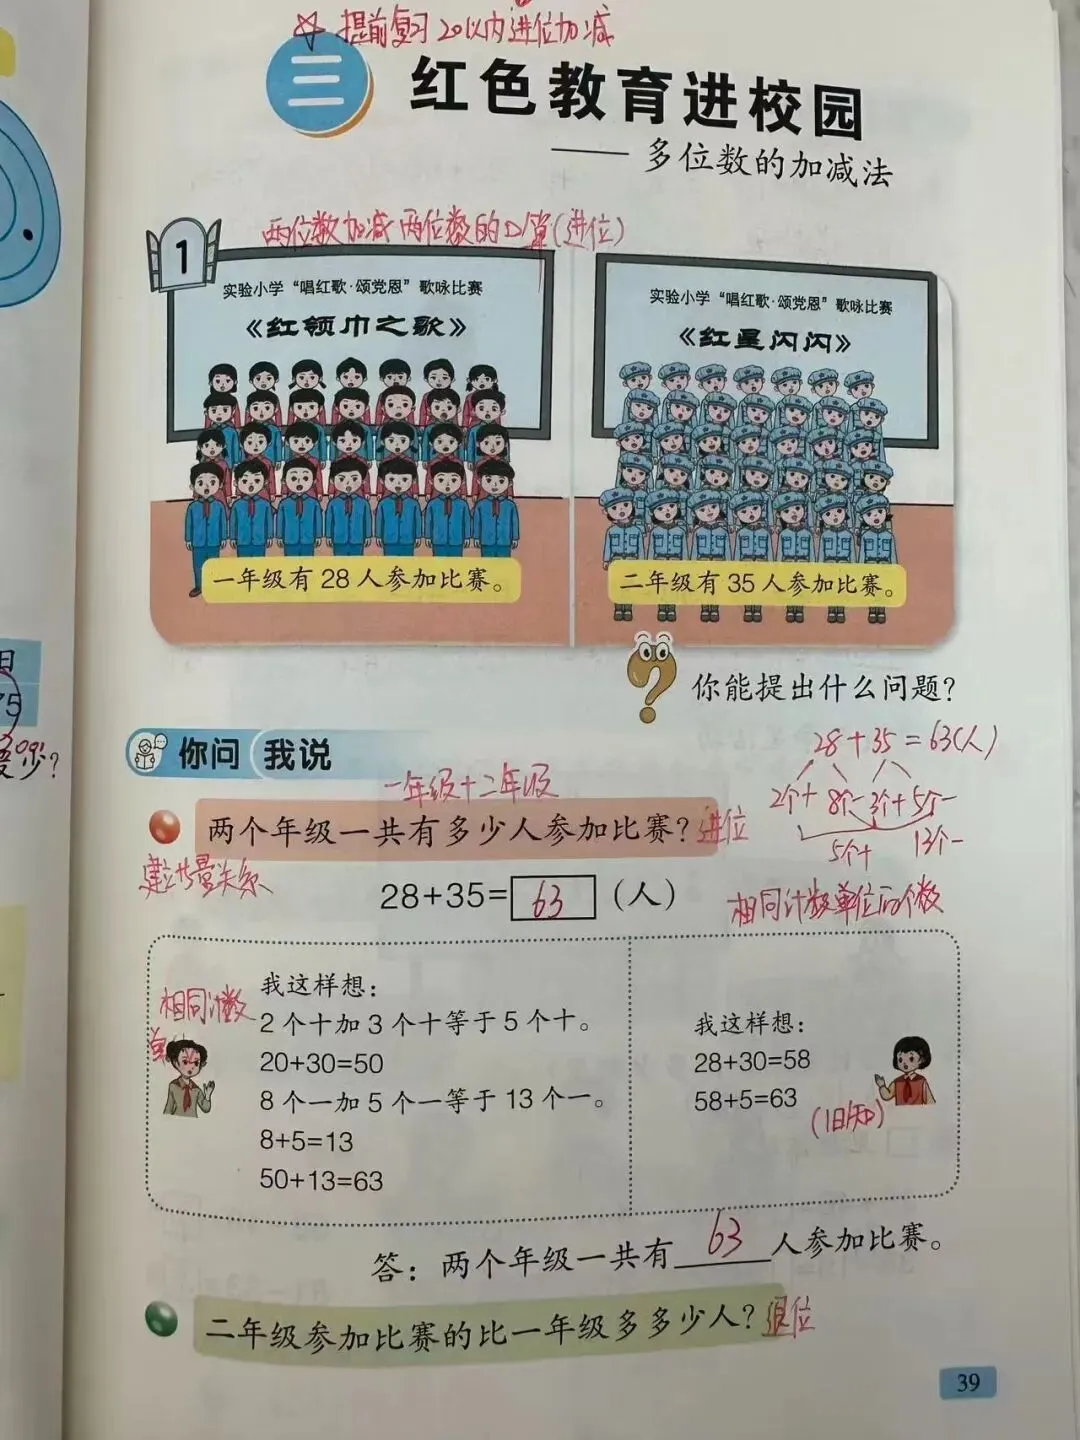 ☆ 提前复习20以内进位加减
三 红色教育进校园
—— 多位数的加减法
两位数加减两位数的口算(进位)
1
实验小学“唱红歌·颂党恩”歌咏比赛
《红领巾之歌》
实验小学“唱红歌·颂党恩”歌咏比赛
《红星闪闪》
一年级有 28 人参加比赛。
二年级有 35 人参加比赛。
你能提出什么问题?
你问 我说
28+35=63(人)
2个十 8个一 3个十 5个一
5个十 13个一
一年级+二年级
两个年级一共有多少人参加比赛? 进位
28+35= 63 (人)
相同计数单位的个数
相同计数
单
我这样想:
2 个十加 3 个十等于 5 个十。
20+30=50
8 个一加 5 个一等于 13 个一。
8+5=13
50+13=63
我这样想:
28+30=58
58+5=63
(旧知)
答: 两个年级一共有 63 人参加比赛。
二年级参加比赛的比一年级多多少人? 退位
39
日
75
少?